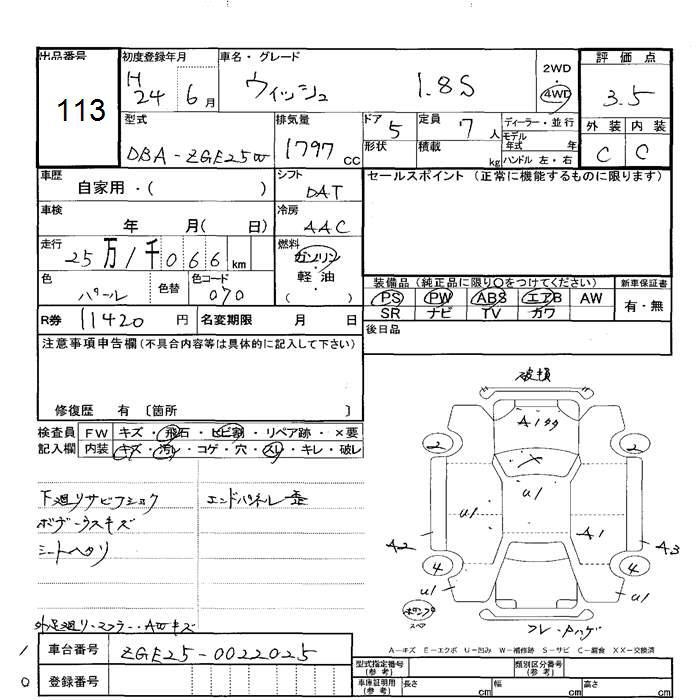 出品番号 初度登録年月 車名・グレード 2WD 評価点
113 H 24 6月 ウィッシュ 1.8S 4WD 3.5
型式 排気量 ドア 5 定員 7人 ディーラー・並行 外装 内装
DBA-ZGE25W 1797cc 形状 積載 kg モデル年式 年 C C
ハンドル 左・右
車歴 自家用・( ) シフト DAT セールスポイント (正常に機能するものに限ります)
車検 年 月( 日) 冷房 AAC
走行 25万1千066km 燃料 ガソリン・軽・油 ( )
色 パール 色替 色コード 070 装備品 (純正品に限り○をつけてください) 新車保証書
PS PW ABS エアB AW 有・無
R券 11420円 名変期限 月 日 SR ナビ TV カワ
後日品
注意事項申告欄(不具合内容等は具体的に記入して下さい)
修復歴 有 〔箇所 〕
検査員 FW キズ・飛石・ヒビ割・リペア跡・×要
記入欄 内装 キズ・汚レ・コゲ・穴・スレ・キレ・破レ
下廻りサビフショク エンドパネル歪
ボデーウスキズ
シートヘタリ
外足廻り・マフラー・AWキズ
破損
A1
2 2
X
U1 U1
A1
A2 A3
4 4
U1 U1
スペア
A=キズ E=エクボ U=凹み W=補修跡 S=サビ C=腐食 XX=交換済
1 車台番号 ZGE25-0022025
0 登録番号
型式指定番号(参考) 類別区分番号(参考)
車庫証明用(参考) 長さ cm 幅 cm 高さ cm